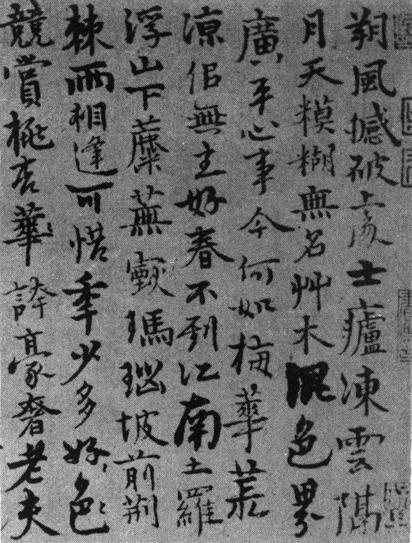 朔風撼破處士廬凍雲隔
月天模糊無名艸木混色界
廣平心事今何如梅華荒
凉似無主好春不到江南土羅
浮山下蘼蕪煙瑪瑙坡前荊
棘雨相逢可惜秊少多好色
競賞桃杏華誇豪奢老夫